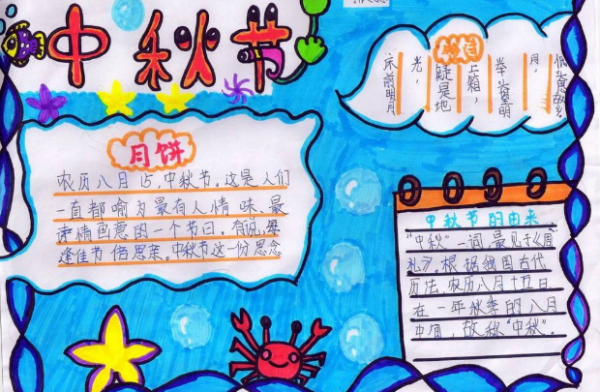 中秋节
床前明月
光，
疑是地
上箱，
月，
月饼
农历八月15，中秋节，这是人们
一直都喻为最有人情味、最
诗情画意的一个节日。有说，每
逢佳节倍思亲。中秋节这一份思念
中秋节的由来
“中秋”一词，最见于《周
礼》，根据我国古代
历法，农历八月十五日
在一年秋季的八月
中旬，故称“中秋”.